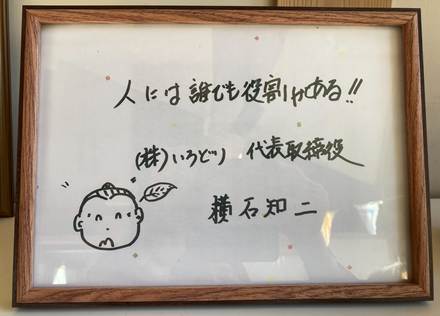 人には誰でも役割がある!!
(株)いろどり 代表取締役
横石知二